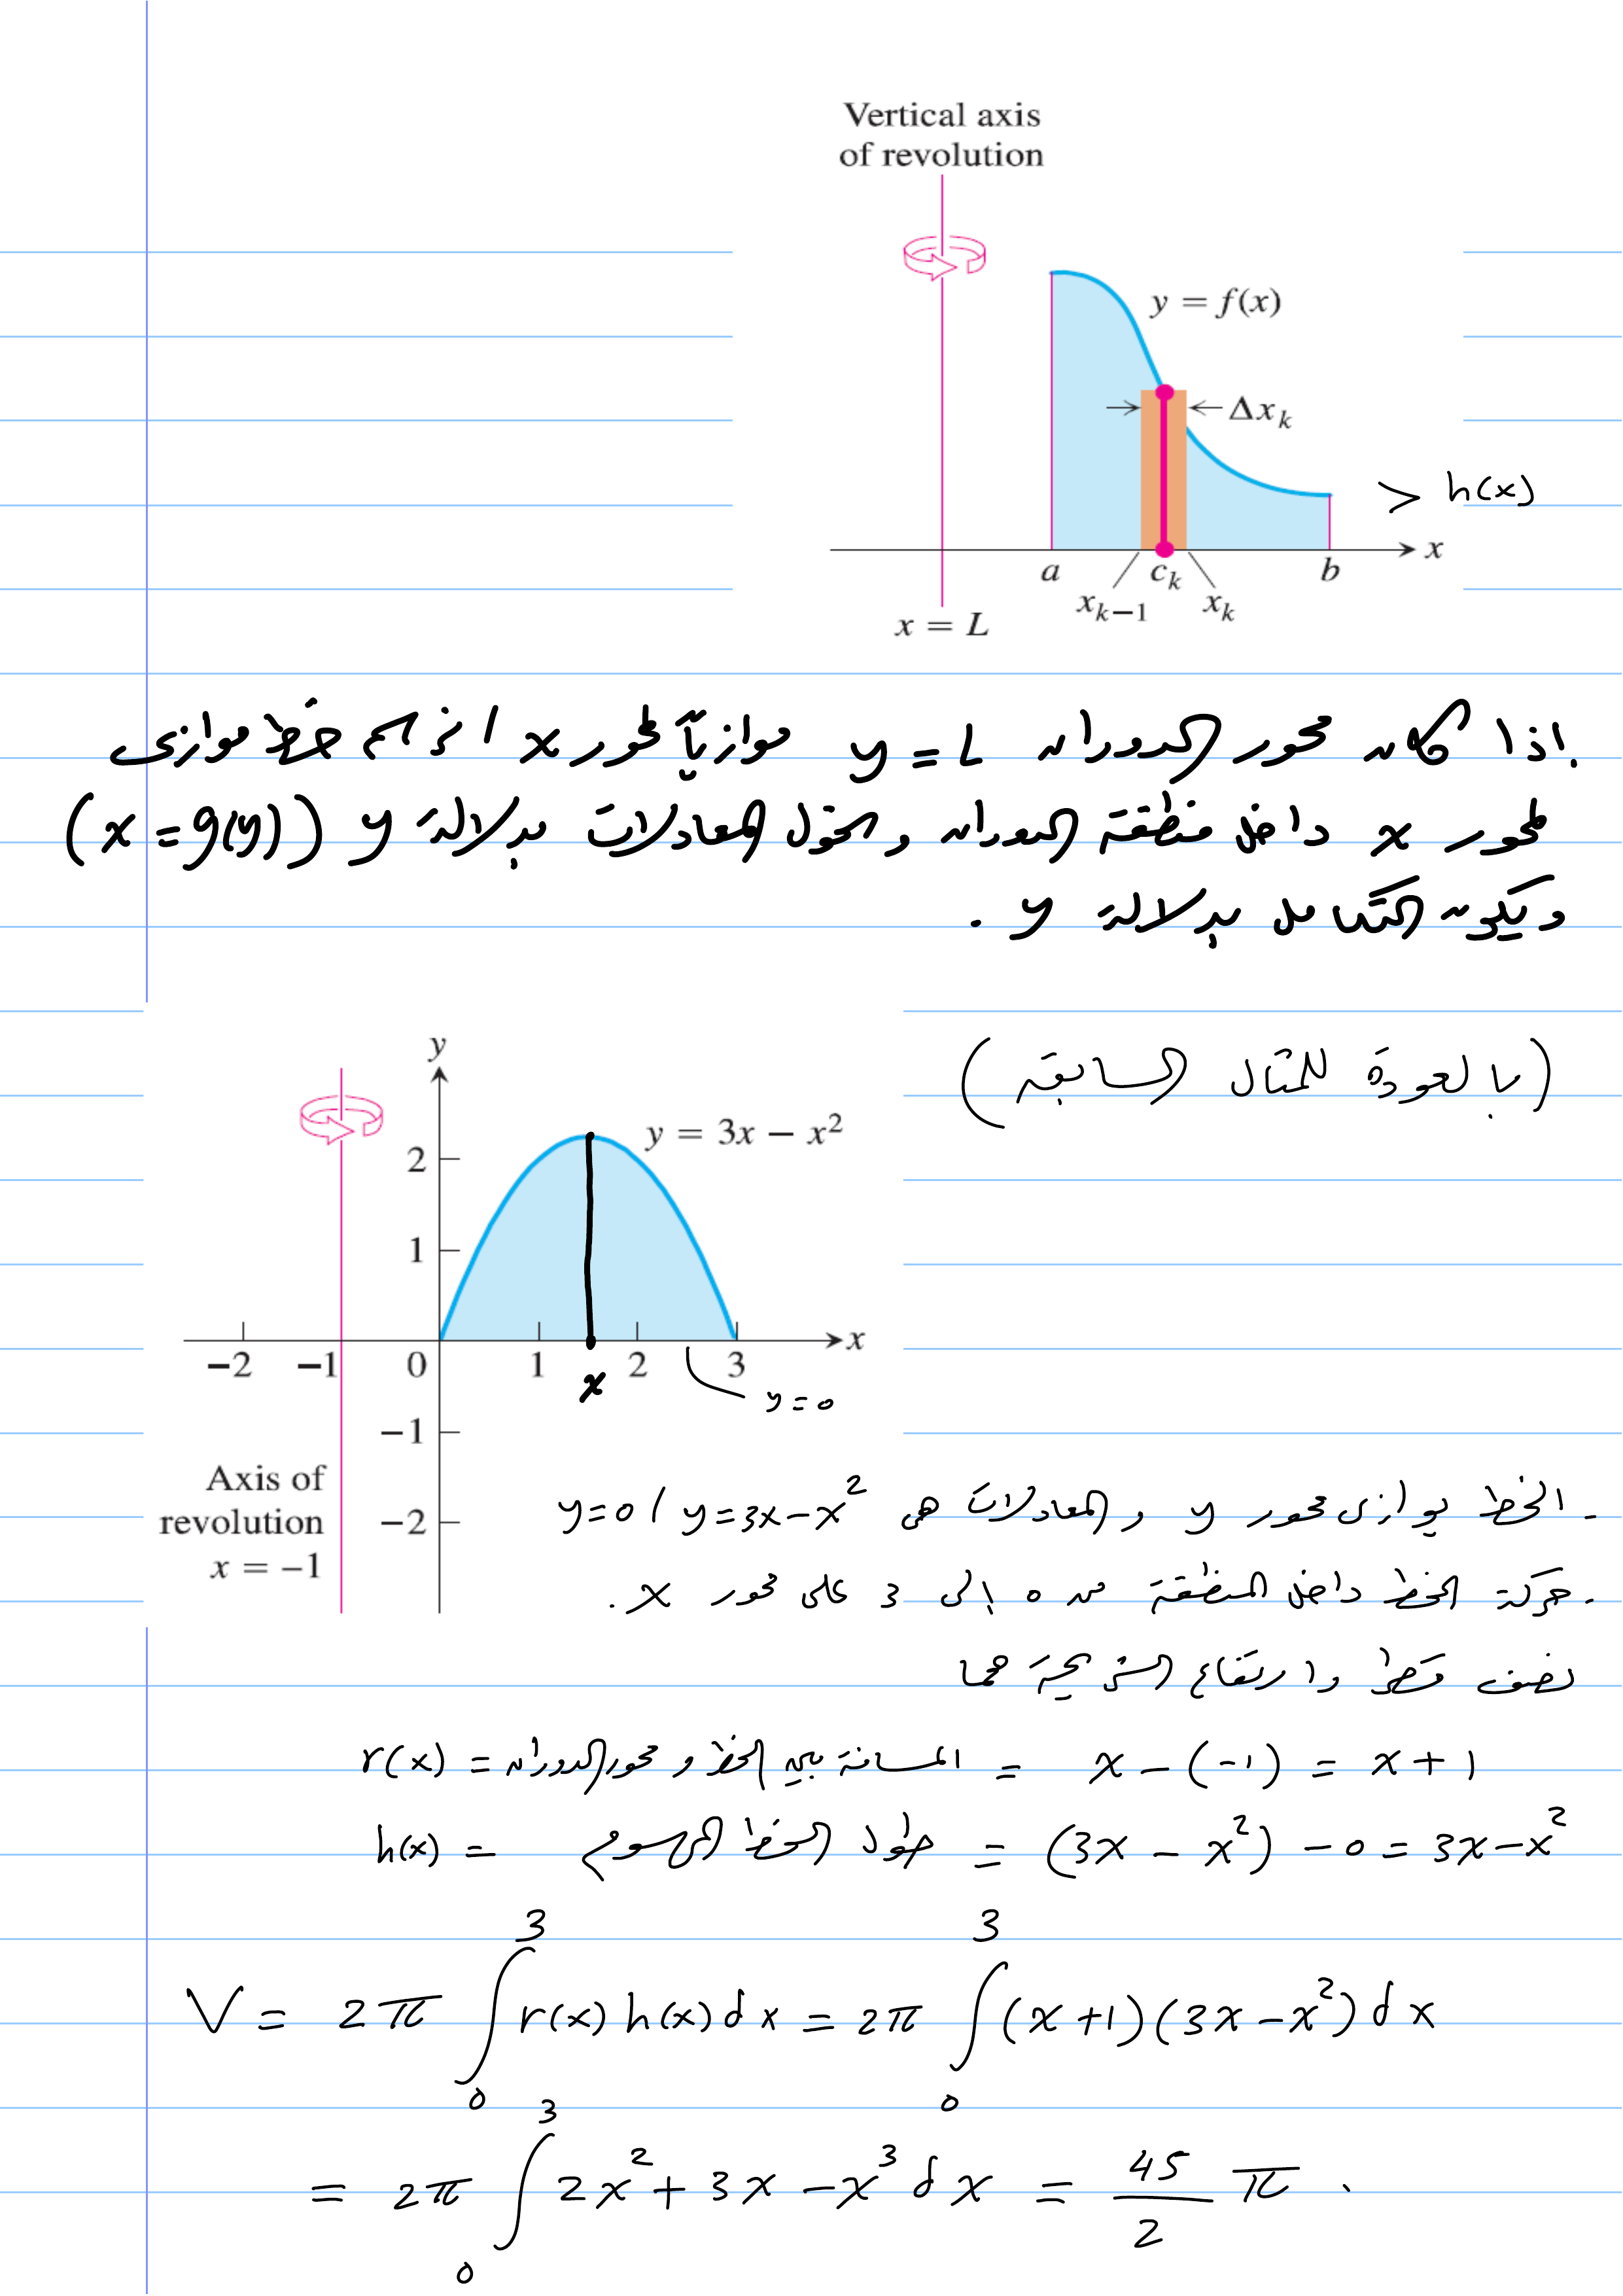 Vertical axis
of revolution
y = f(x)
Δx_k
> h(x)
x
a
c_k
b
x_{k-1}
x_k
x = L
. اذا كان محور الدوران y = L موازياً لمحور x / نرسم خط موازى
لمحور x داخل منطقة الدوران ونحول المعادلات بدلالة y (x = g(y))
ويكون التكامل بدلالة y .
(بالعودة للمثال السابق)
y
y = 3x − x²
2
1
−2 −1 0 1 2 3 x
x
y = 0
−1
−2
Axis of
revolution
x = −1
- الخط يوازى محور y والمعادلات هى y = 3x − x² / y = 0
- حركة الخط داخل المنطقة من 0 إلى 3 على محور x .
نصف قطر وارتفاع الشريحة هما
r(x) = المسافة بين الخط ومحور الدوران = x − (−1) = x + 1
h(x) = طول الخط المرسوم = (3x − x²) − 0 = 3x − x²
V = 2π ∫₀³ r(x) h(x) dx = 2π ∫₀³ (x + 1)(3x − x²) dx
= 2π ∫₀³ 2x² + 3x − x³ dx = 45/2 π .